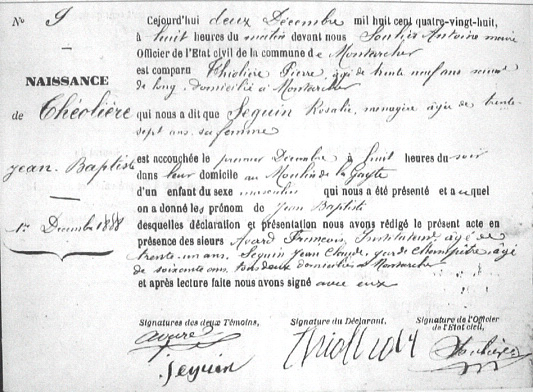 No 9
NAISSANCE
de Théolière
Jean-Baptiste
1er Décembre 1888
Cejourd'hui deux Décembre mil huit cent quatre-vingt-huit,
à huit heures du matin devant nous Antoine maire
Officier de l'Etat civil de la commune de Montarcher
est comparu Thiolière Pierre, âgé de trente neuf ans
de long, domicilié à Montarcher
qui nous a dit que Seguin Rosalie, ménagère âgée de trente
sept ans, sa femme
est accouchée le premier Décembre à huit heures du soir
dans leur domicile au Moulin de la
d'un enfant du sexe masculin qui nous a été présenté et auquel
on a donné les prénom de Jean Baptiste
desquelles déclaration et présentation nous avons rédigé le présent acte en
présence des sieurs François, Instituteur, âgé de
trente-un ans, Seguin Jean Claude, garde champêtre âgé
de soixante ans, tous deux domiciliés à Montarcher
et après lecture faite nous avons signé avec eux
Signatures des deux Témoins, Signature du Déclarant, Signature de l'Officier
de l'Etat civil,
Seguin